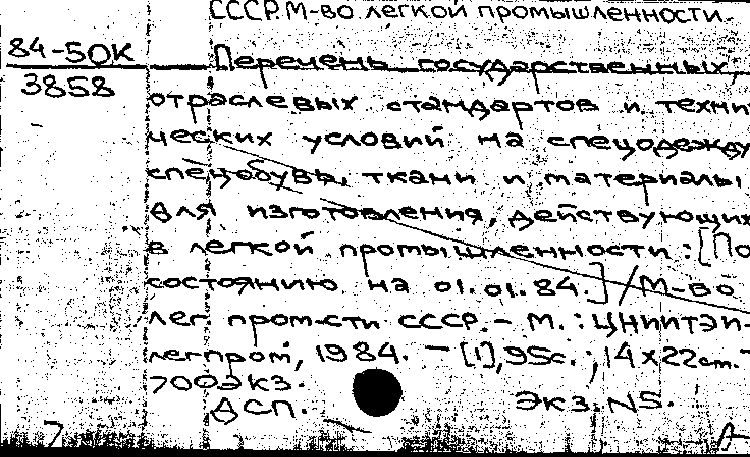 СССР. М-во легкой промышленности.
84-50К
3858
Перечень государственных,
отраслевых стандартов и техни
ческих условий на спецодежду
спецобувь, ткани и материалы
для изготовления, действующих
в легкой промышленности : [По
состоянию на 01.01.84.] / М-во
лег. пром-сти СССР. – М. : ЦНИИТЭИ-
легпром, 1984. – [1], 95с. ; 14 х 22 см. –
700 экз.
ДСП. экз. №5.